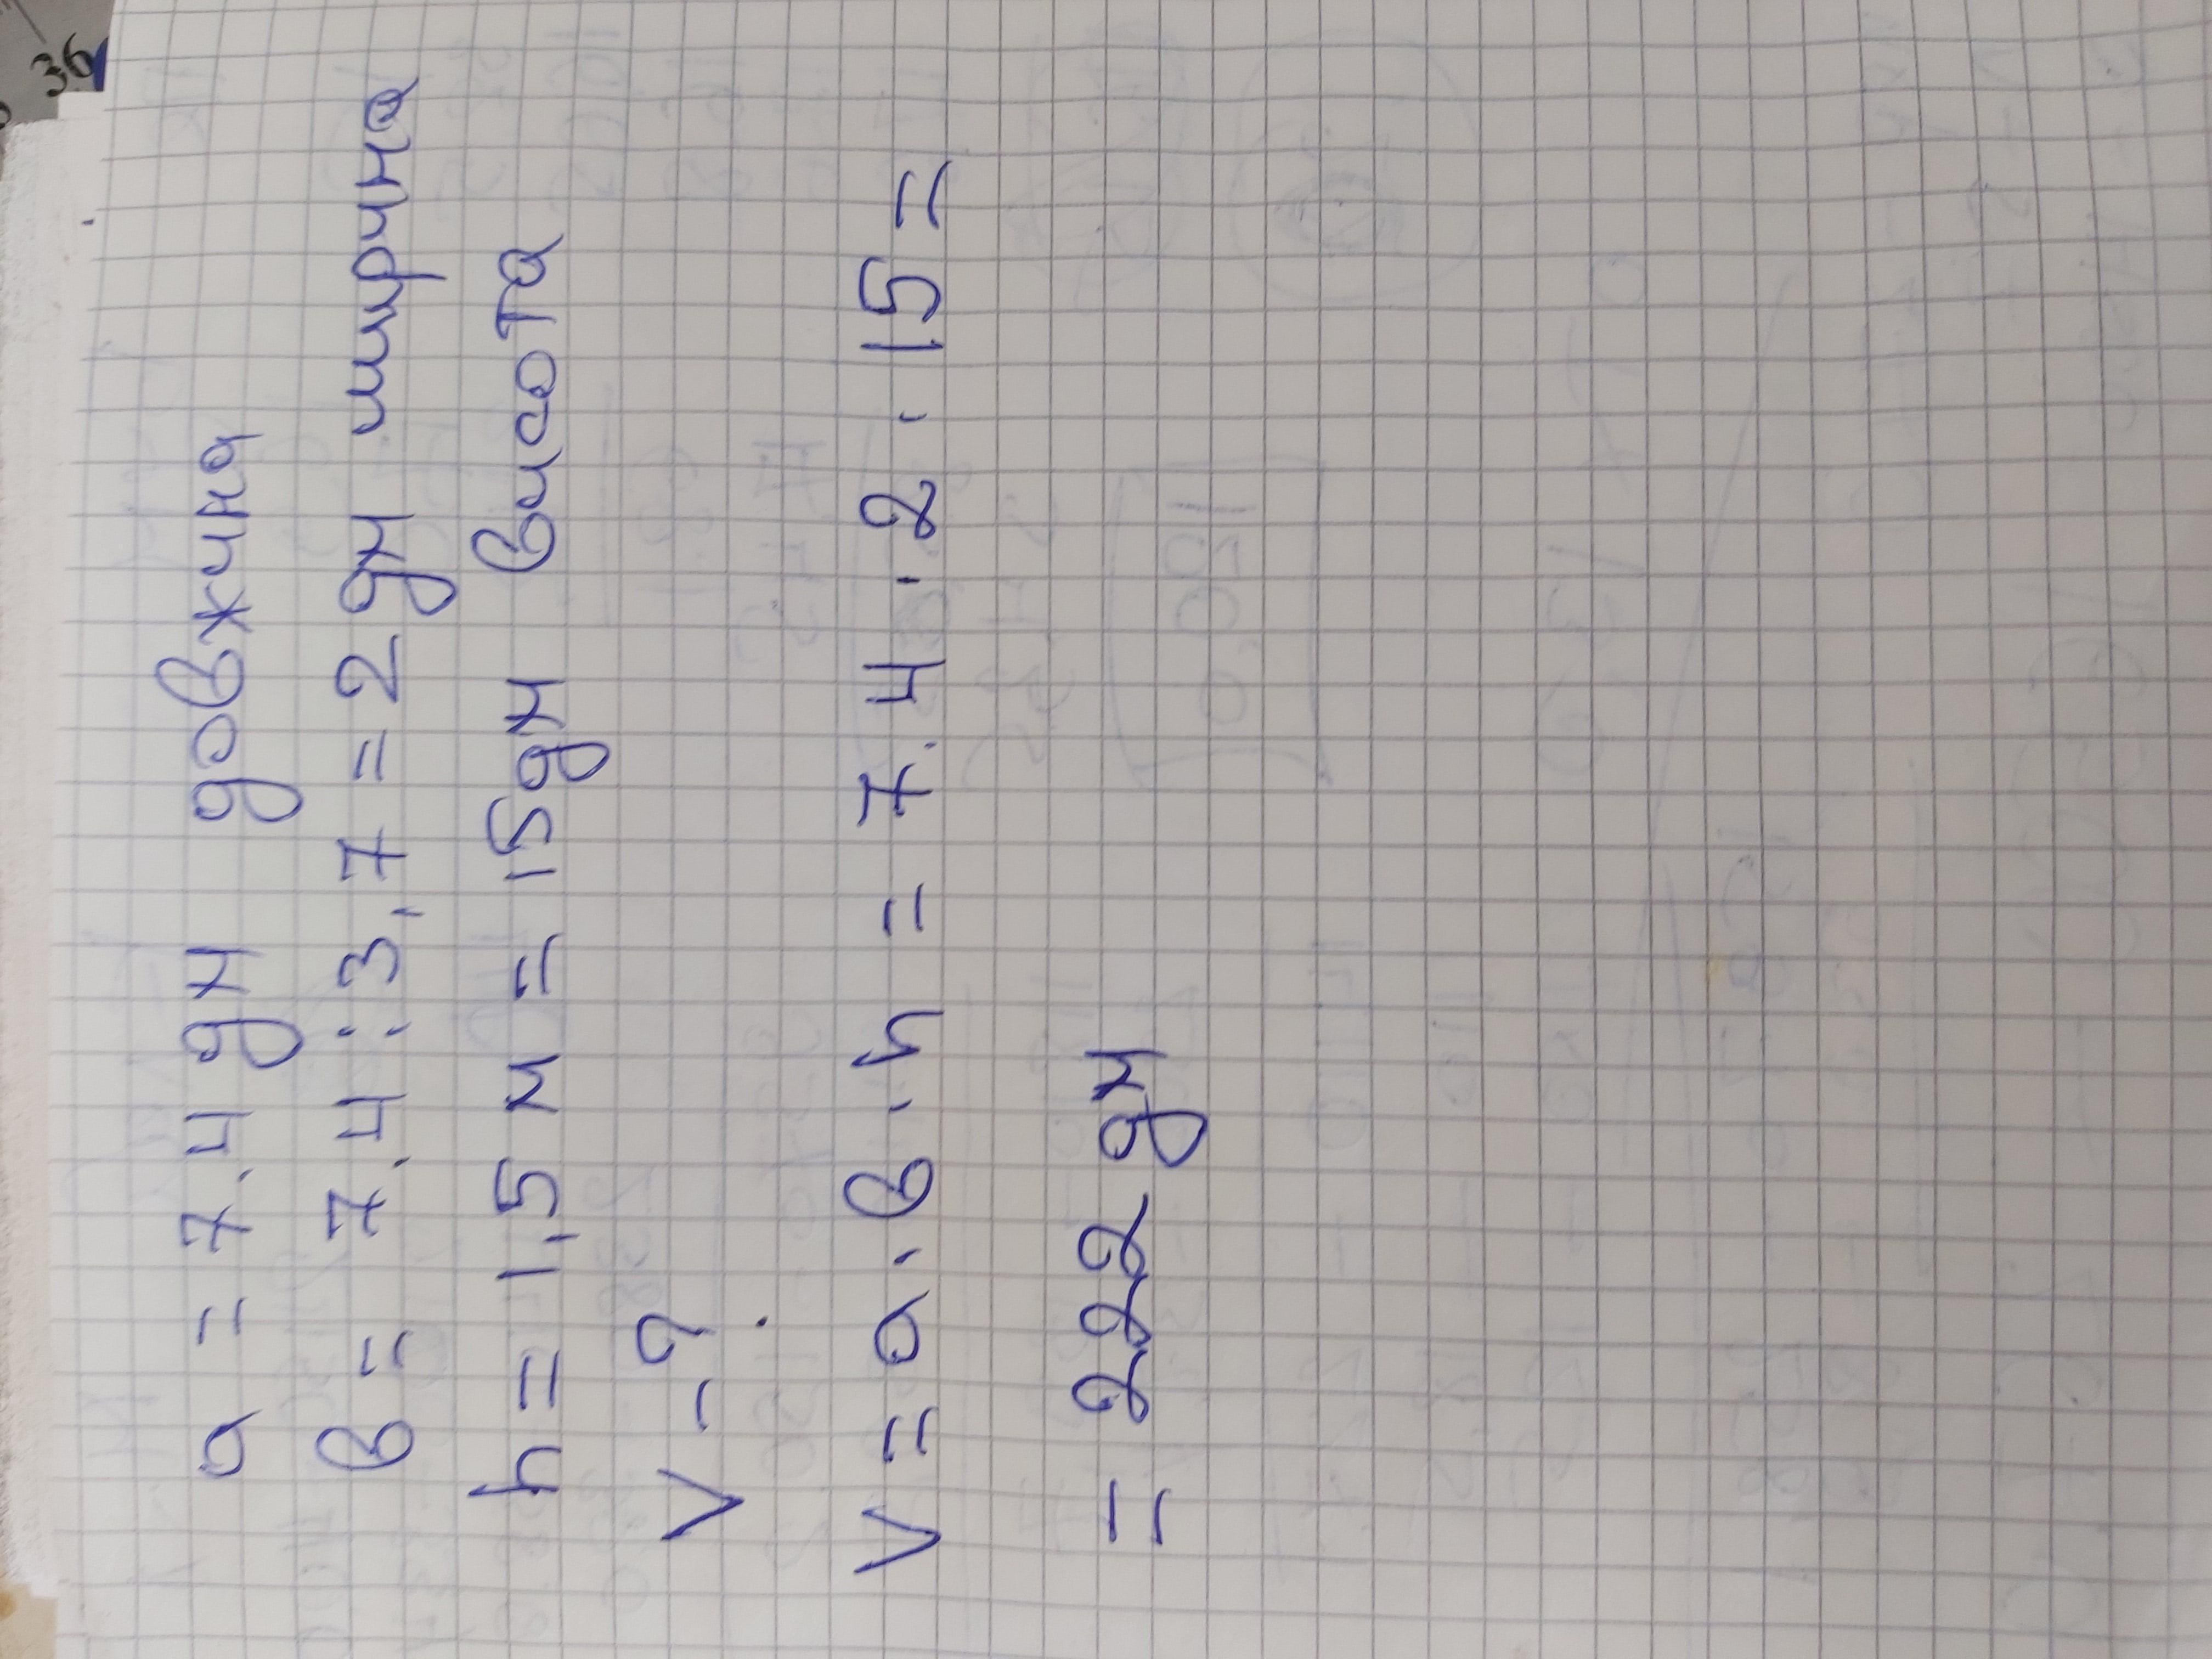 a = 7.4 дм довжина
в = 7.4 : 3,7 = 2 дм ширина
h = 1,5 м = 15 дм висота
V - ?
V = a · в · h = 7.4 · 2 · 15 =
= 222 дм
36